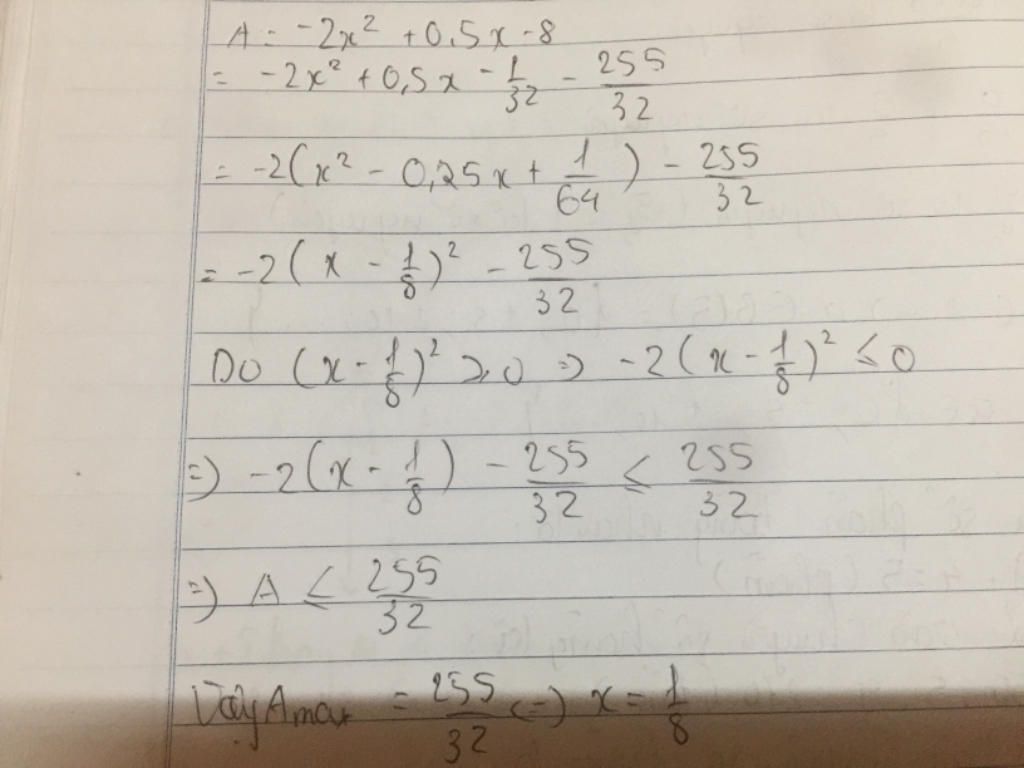 A = -2x² + 0,5x - 8
= -2x² + 0,5x - 1/32 - 255/32
= -2(x² - 0,25x + 1/64) - 255/32
= -2(x - 1/8)² - 255/32
Do (x - 1/8)² ≥ 0 => -2(x - 1/8)² ≤ 0
=> -2(x - 1/8) - 255/32 ≤ 255/32
=> A ≤ 255/32
Vậy Amax = 255/32 <=> x = 1/8